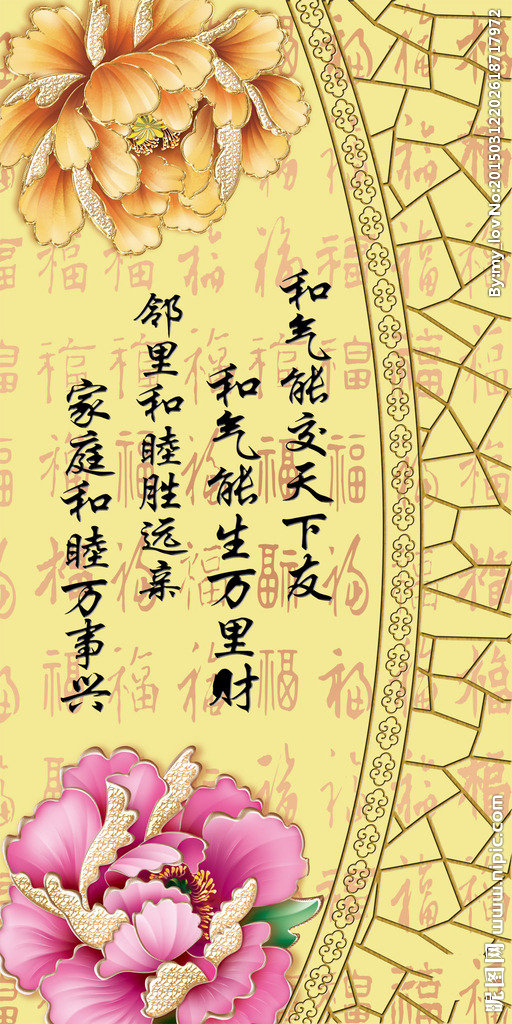 和气能交天下友
和气能生万里财
邻里和睦胜远亲
家庭和睦万事兴
福
By:my_lov No:20150312202618717972
昵图网 www.nipic.com